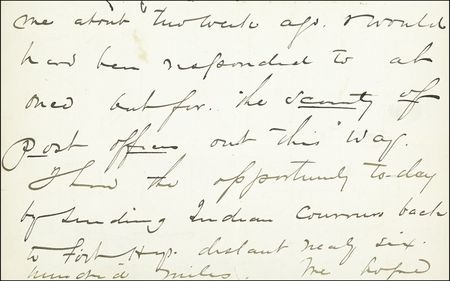 me about two week ago. & would
have been responded to at
once but for. the scarcity of
Post offices out this way.
I have the opportunity to-day
by sending Indian Couriers back
to Fort Hays. distant nearly six.
hundred miles. We hoped